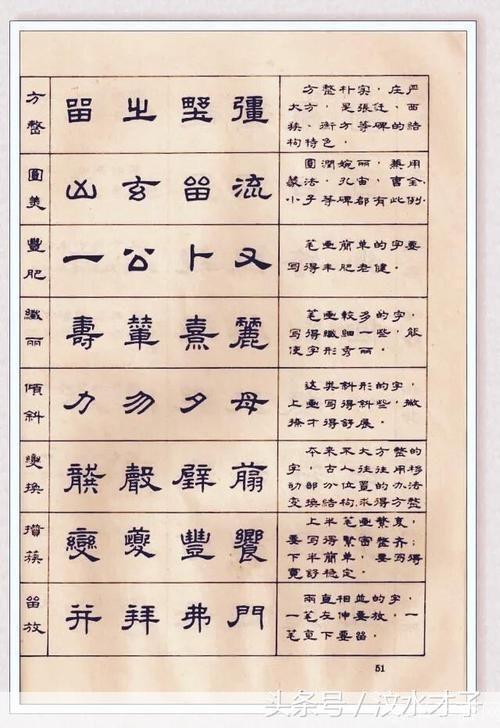 方整
留 之 野 彊
方整朴实，庄严
大方，是張迁、西
狹、衡方等碑的结
构特色。
圓美
山 玄 留 流
圓潤婉丽，兼用
篆法，孔宙、曹全、
小子等碑都有此例
豐肥
一 公 卜 又
笔画簡单的字，要
写得丰肥老健。
纖丽
壽 輩 熹 麗
笔画較多的字，
写得纖细一些，能
使字形秀丽。
傾斜
力 勿 夕 母
这类斜形的字，
上画写得斜些，撇
捺才得舒展。
变換
龔 聲 壁 蘙
本来不大方整的
字，古人往往用移
动部分位置的办法
变换结构求得方整
攢蔟
變 夔 豐 饗
上半笔画繁衷，
要写得繁密整齐；
下半簡单，要写得
寬舒稳定。
留放
并 拜 弗 門
兩直相並的字，
一笔左伸要放，一
笔直下要留。
51
头条号/汶水才子